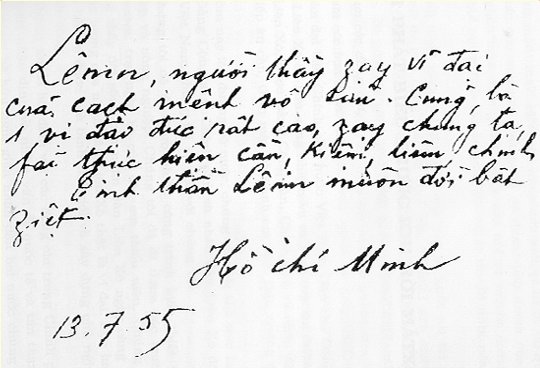 Lênin, người thầy zạy vĩ đại
của cách mệnh vô sản. Cũng là
1 vị đạo đức rất cao, zạy chúng ta
fải thực hiện cần, kiệm, liêm, chính
Tinh thần Lênin muôn đời bất
ziệt.
Hồ Chí Minh
13.7.55